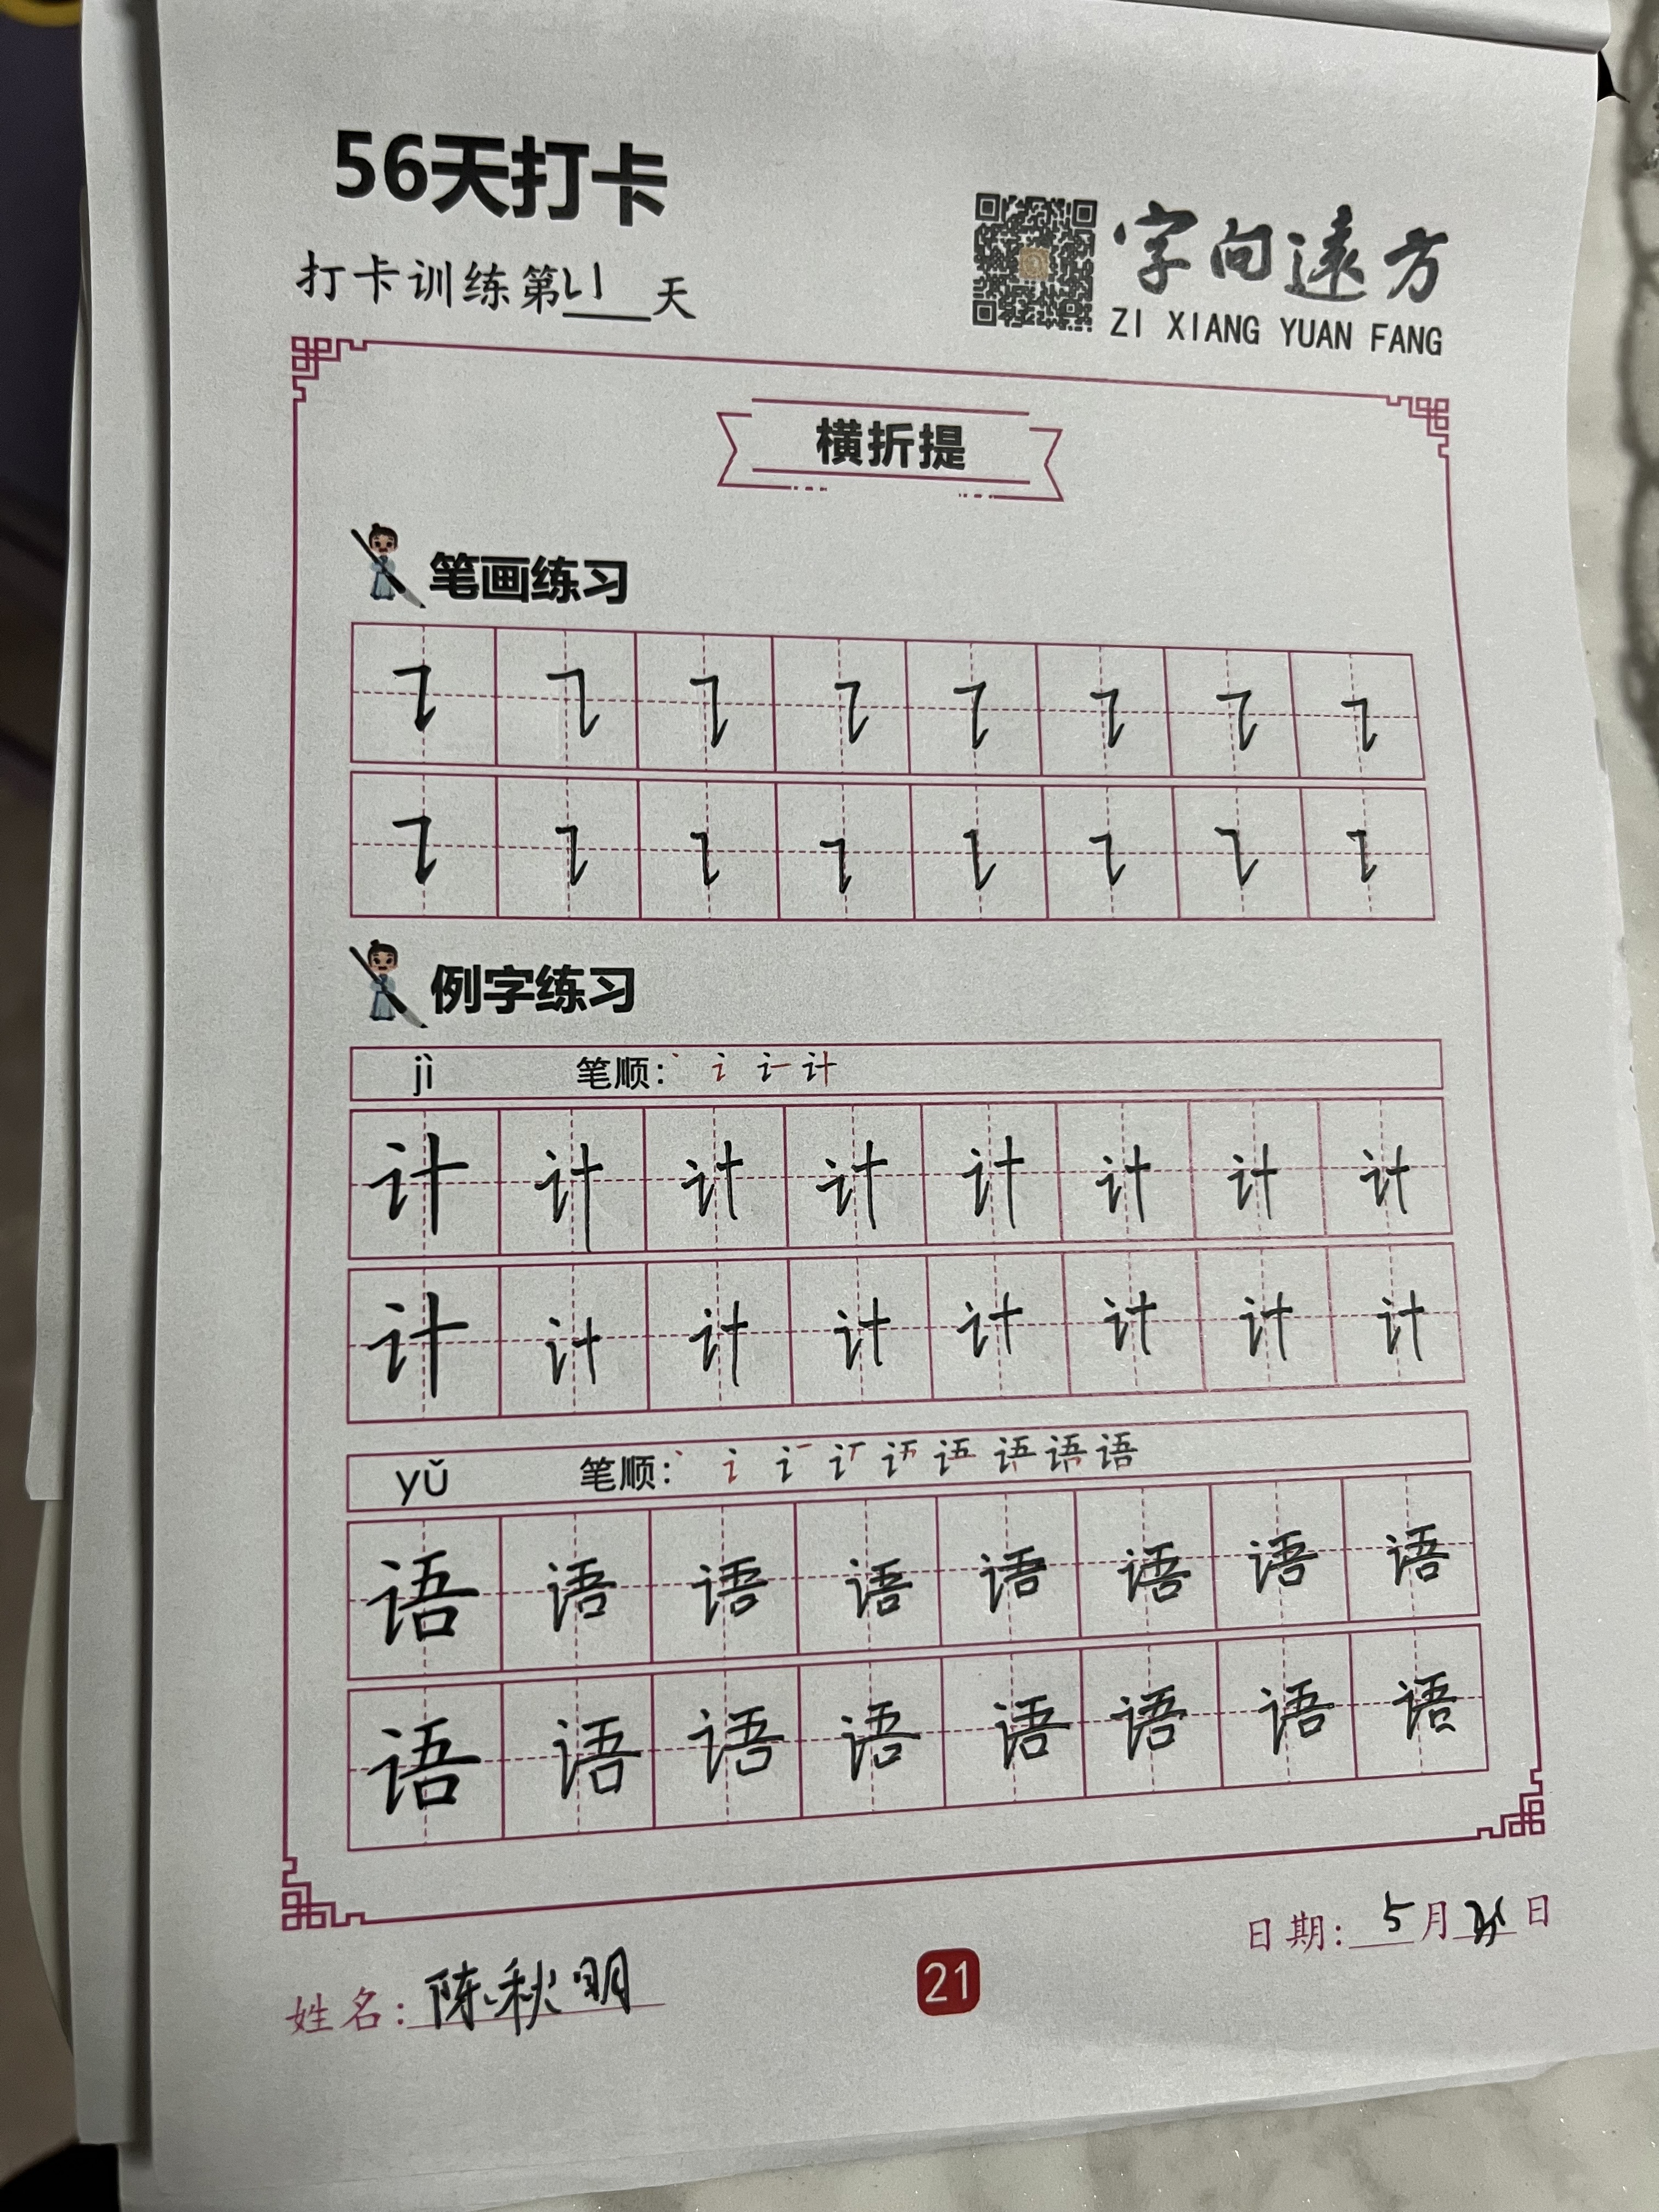 56天打卡
打卡训练第21天
字向遠方
ZI XIANG YUAN FANG
横折提
笔画练习
㇊ ㇊ ㇊ ㇊ ㇊ ㇊ ㇊ ㇊
㇊ ㇊ ㇊ ㇊ ㇊ ㇊ ㇊ ㇊
例字练习
jì 笔顺:
计 计 计 计 计 计 计 计
计 计 计 计 计 计 计 计
yǔ 笔顺:
语 语 语 语 语 语 语 语
语 语 语 语 语 语 语 语
日期: 5月 日
姓名: 陈秋明
21